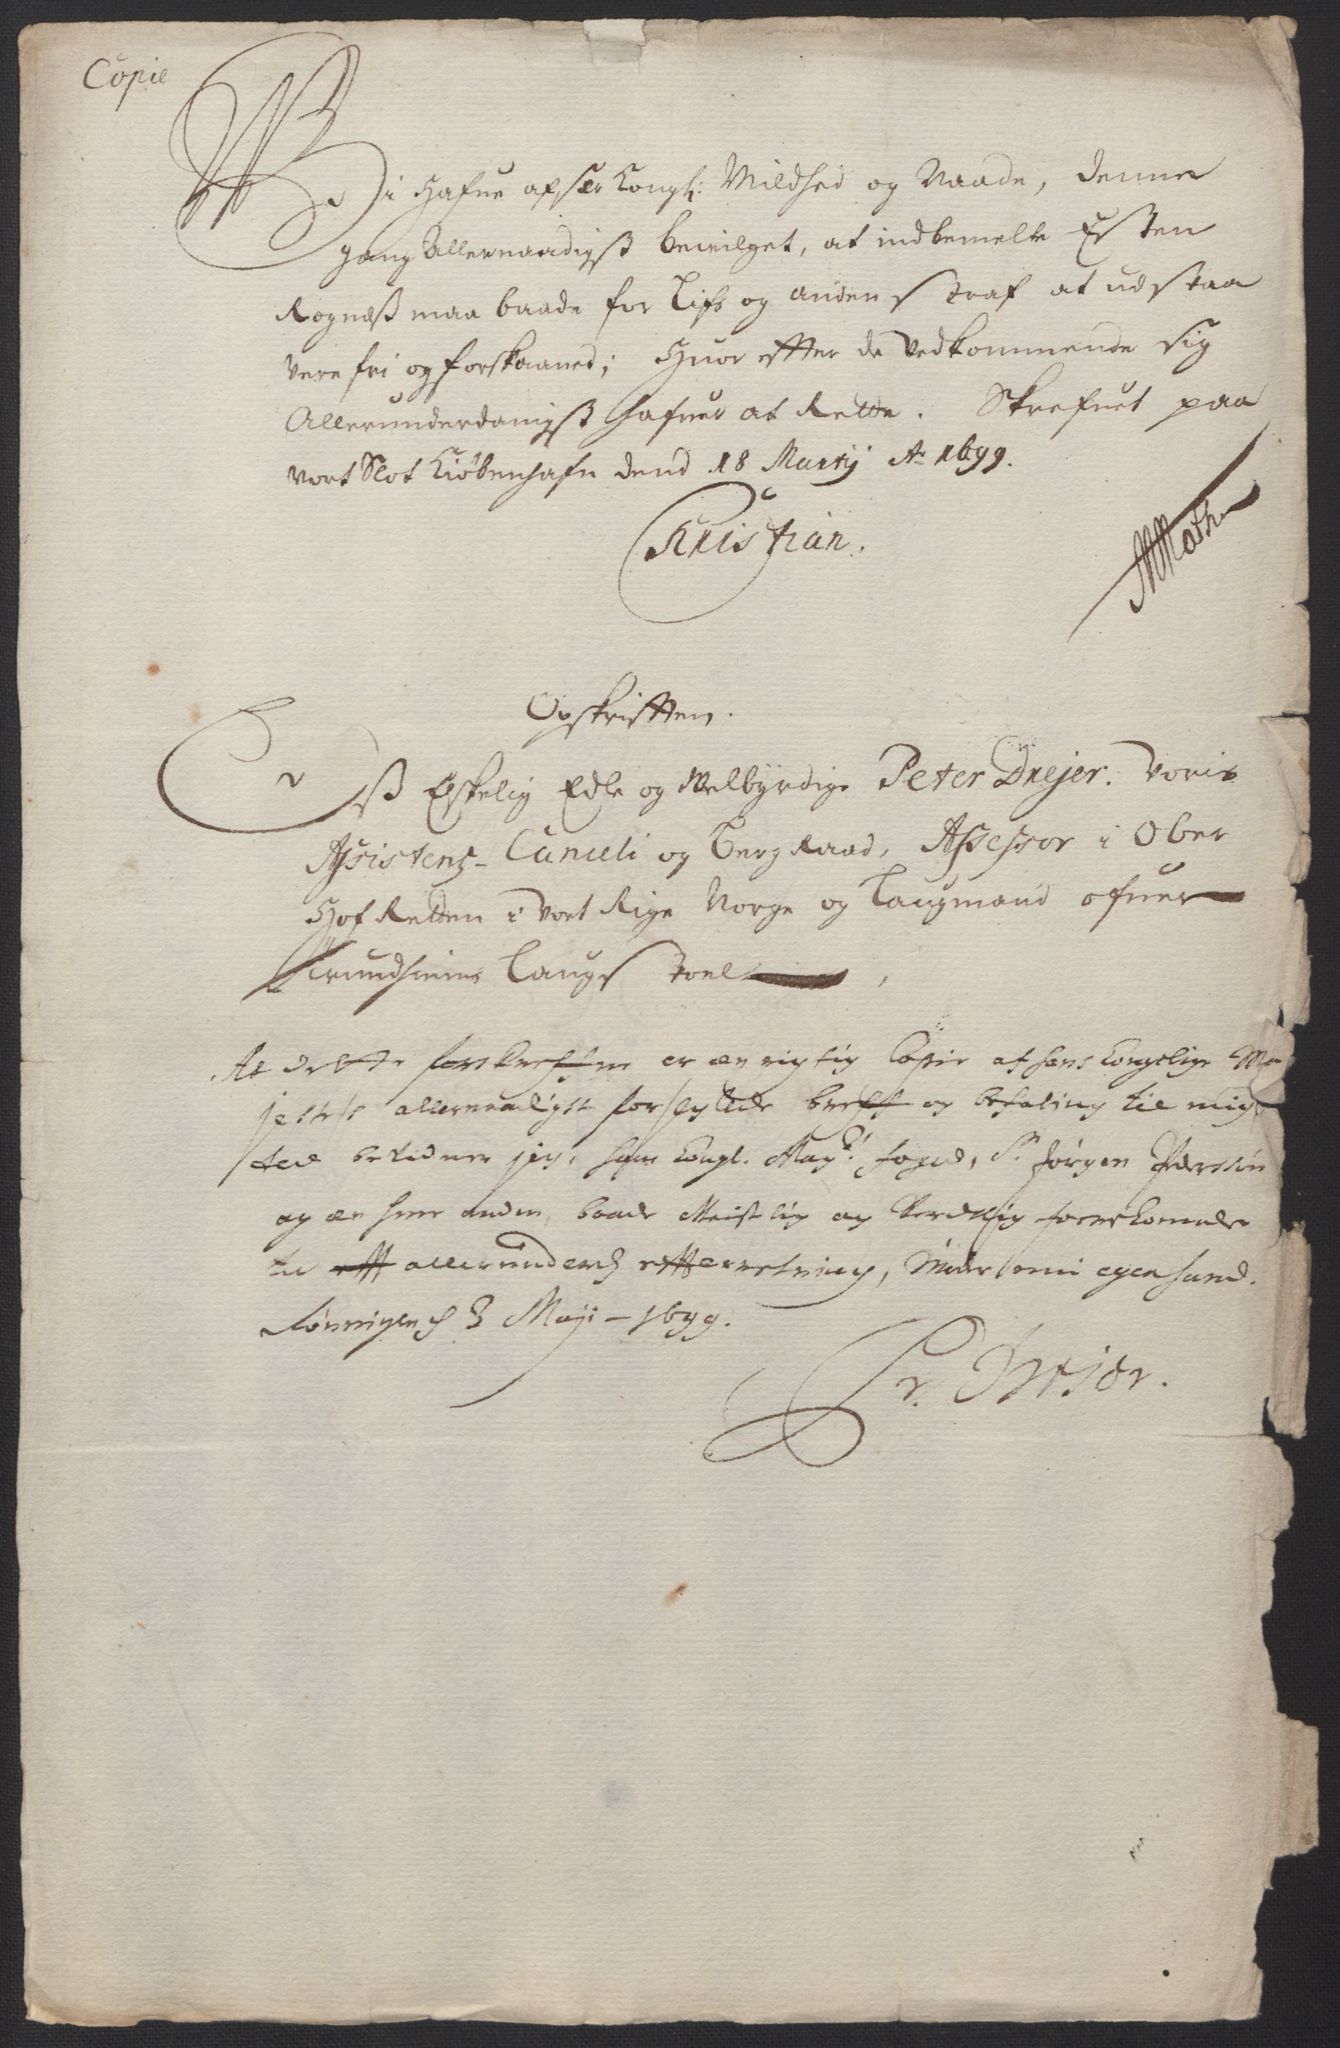 Copie
Vi Hafue af sær Kongl: Mildhed og Naade, denne
gang Allernaadigst beuilget, at indbemelte Esten
Rognæs maa baade for Lifs og anden straf at udstaa
Vere fri og forskaanet; Huor efter de Vedkommende sig
Allerunderdanigst hafuer at Rette. Skrefuet paa
Vort Slot Kiøbenhafn dend 18 Martij Ao 1699.
Christian.
MMoth
Opskrifften.
Oß Elskelig Edle og Welbyrdige Peter Dreyer. Voris
Assistentz- Canceli og Berg Raad, Assessor i Ober
Hof Retten i Vort Rige Norge og Laugmand ofuer
Trundhiems Laugstoel
At dette forskrefne er æn rigtig Copie af hans Kongelige Ma
jestets allernaadigste forseglede breff og befaling til mig
det bekiender jeg, hans Kongl. Mayts foged, Sr Jørgen Pedersøn
og en huer anden, baade Geistlig og Verdslig forekommende
til allerunderd efterretning, Under min egen haand.
Rønningen d 3 Maji - 1699.
Pr. Dreier.